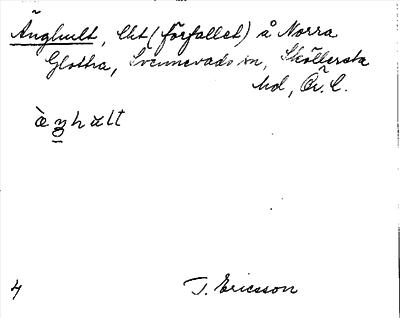 Änghult, lht (förfallet) å Norra
Glottra, Svennevads sn, Sköllersta
hd, Ör. l.
ὰηhult
4 T. Ericsson